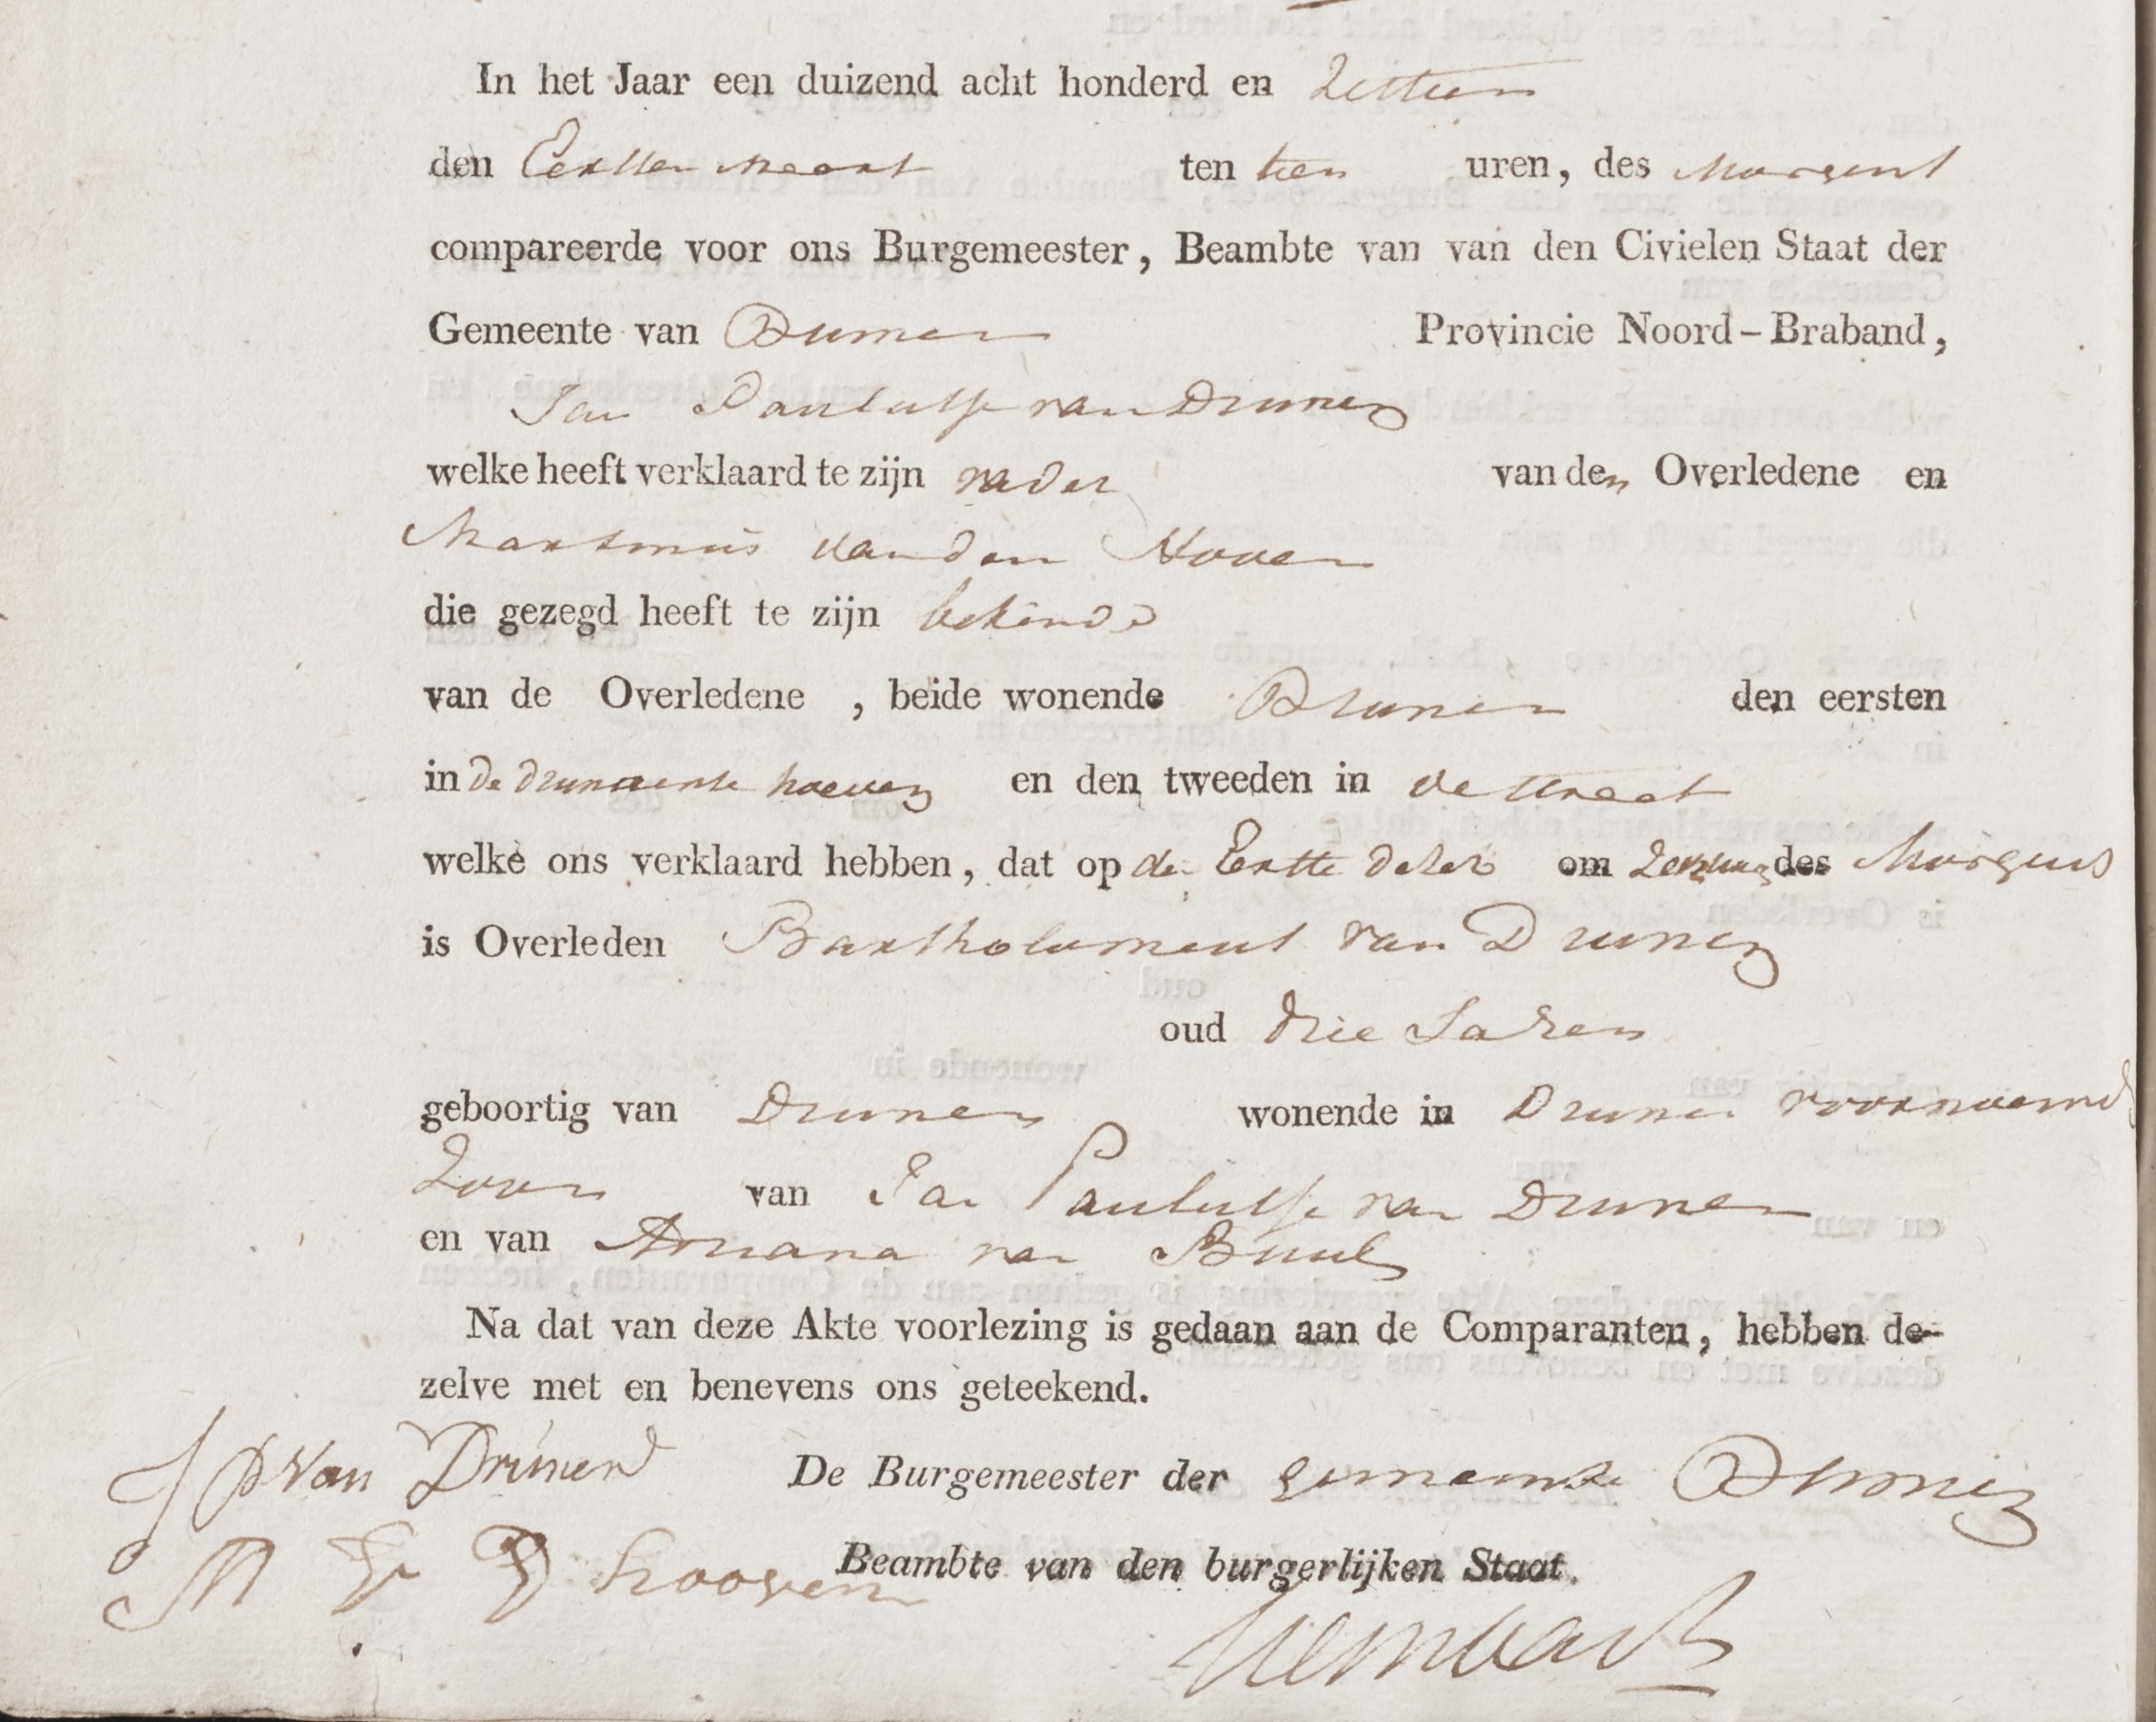 In het Jaar een duizend acht honderd en Zestien
den Eersten Maart ten tien uren, des Morgens
compareerde voor ons Burgemeester, Beambte van van den Civielen Staat der
Gemeente van Drunen Provincie Noord-Braband,
Jan Paulusse van Drunen
welke heeft verklaard te zijn vader van den Overledene en
Martinus van den Hoven
die gezegd heeft te zijn bekende
van de Overledene, beide wonende Drunen den eersten
in de drunense hoeven en den tweeden in de straat
welke ons verklaard hebben, dat op de Eerste dezer om des Morgens
is Overleden Bartholomeus van Drunen
oud drie Jaren
geboortig van Drunen wonende in Drunen voornoemd
Zoon van Jan Paulusse van Drunen
en van Adriana van Buul
Na dat van deze Akte voorlezing is gedaan aan de Comparanten, hebben de-
zelve met en benevens ons geteekend.
J P Van Drunen De Burgemeester der gemeente Drunen
M V D hooven Beambte van den burgerlijken Staat.